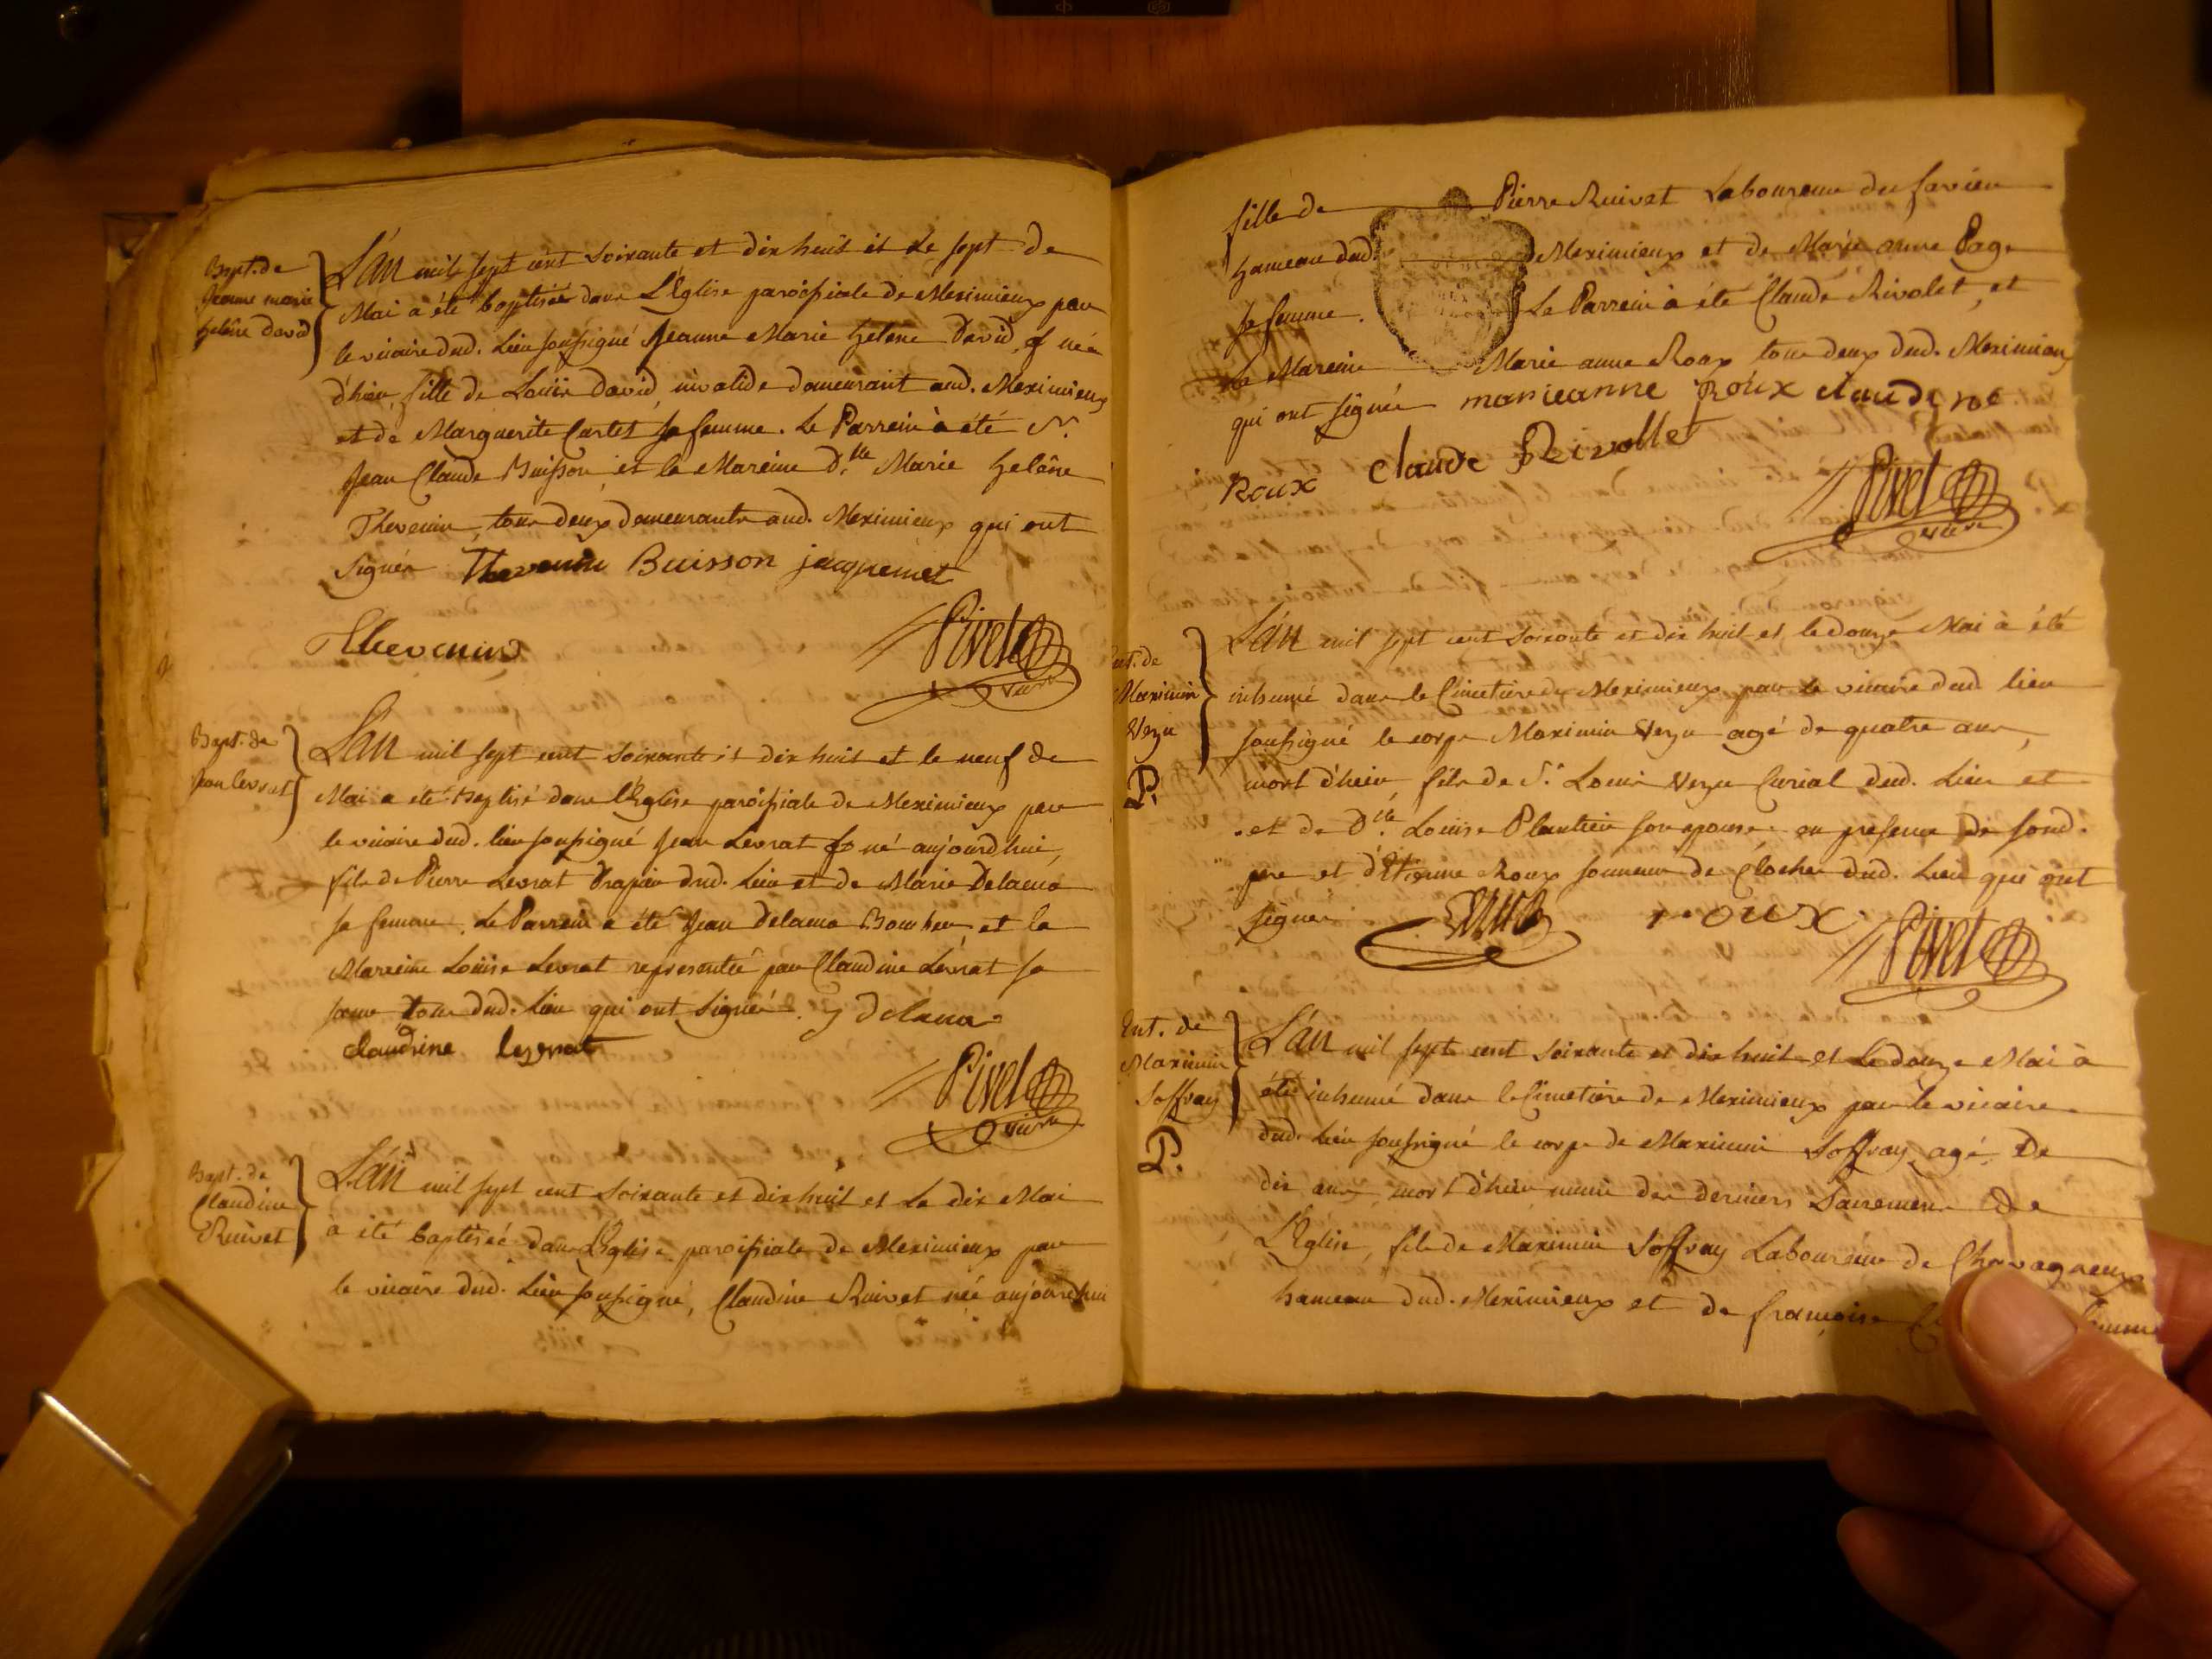 Bapt. de
Jeanne marie
helène david
L'an mil sept cent soixante et dix huit et le sept de
Mai a été baptisée dans L'Eglise paroissiale de Meximieux par
le vicaire dud. Lieu soussigné Jeanne Marie helene David née
d'hier, fille de Louis David invalide demeurant aud. Meximieux
et de Marguerite Cartet sa femme. Le Parrein à été Sr.
Jean Claude Buisson et la Mareine D.lle Marie helène
Thevenin, tous deux demeurants aud. Meximieux qui ont
signés Thevenin Buisson jacquemet
Thevenin
Pivet
vicre
Bapt. de
Jean levrat
L'an mil sept cent soixante et dix huit et le neuf de
Mai a été Baptisé dans l'Eglise paroissiale de Meximieux par
le vicaire dud. lieu soussigné Jean Levrat né aujourdhui,
fils de Pierre Levrat Drapier dud. Lieu et de Marie Delama
sa femme. Le Parrein a été Jean Delama et la
Marreine Louise Levrat representée par Claudine Levrat sa
soeur tous dud. Lieu qui ont signés. j delama
claudine levrat
Pivet
vicre
Bapt. de
Claudine
Ruivet
L'an mil sept cent soixante et dix huit et le dix Mai
à été baptisée dans L'Eglise paroissiale de Meximieux par
le vicaire dud. Lieu soussigné, Claudine Ruivet née aujourdhui
fille de Pierre Ruivet Laboureur du
hameau dud. Meximieux et de Marie anne Page
sa femme. Le Parrein à été Claude Rivolet, et
La Mareine Marie anne Roux tous deux dud. Meximieux
qui ont signés marieanne Roux claudine
Roux claude Rivollet
Pivet
vicre
Ent. de
Maximin
Vezu
P.
L'an mil sept cent soixante et dix huit et le douze Mai à été
inhumé dans le Cimetière de Meximieux par le vicaire dud. lieu
soussigné le corps Maximin Vezu agé de quatre ans,
mort d'hier, fils de Sr. Louis Vezu Curial dud. Lieu et
et de D.lle Louise Plantier son epouse en presence de sond.
pere et d'Etienne Roux sonneur de Cloches dud. Lieu qui ont
signés
roux
Pivet
Ent. de
Maximin
Soffray
P.
L'an mil sept cent soixante et dix huit et Le douze Mai à
été inhumé dans le Cimetière de Meximieux par le vicaire
dud. Lieu soussigné le corps de Maximin Soffray, agé De
dix ans, mort d'hier muni des derniers Sacremens De
L'Eglise, fils de Maximin Soffray Laboureur de Chavagneux
hameau dud. Meximieux et de françoise